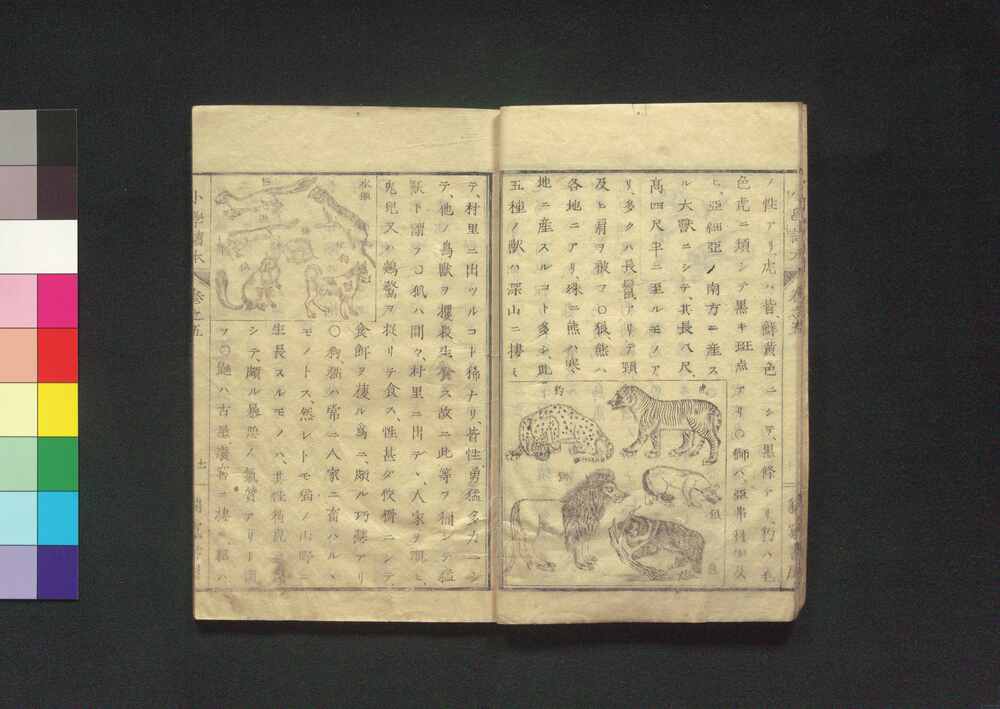 ノ性アリ、虎ハ皆鮮黄色ニシテ、黒條アリ、豹ハ毛
色虎ニ類シテ黒キ斑点アリ〇獅ハ、亞弗利加及
ヒ、亞細亞ノ南方ニ産ス
ル大獸ニシテ、其長八尺、
高四尺半ニ至ルモノア
リ、多クハ長鬣アリテ頸
及ヒ肩ヲ被フ〇狼熊ハ
各地ニアリ、殊ニ熊ハ寒
地ニ産スルコト多シ、此
五種ノ獸ハ深山ニ棲ミ
虎
豹
獅
狼
熊
テ、村里ニ出ツルコト稀ナリ、皆性勇猛多力ニシ
テ、他ノ鳥獸ヲ攫殺生食ス故ニ此等ヲ稱シテ猛
獸ト謂フ〇狐ハ間々村里ニ出デ、人家ヲ覗ヒ、
兎兒又ハ鷄鶩ヲ捉リテ食ス、性甚ダ狡猾ニシテ、
食餌ヲ獲ル為ニ、頗ル巧慧アリ
〇狗猫ハ常ニ人家ニ畜ハルヽ
モノトス、然レトモ猫ノ山野ニ
生長スルモノハ、其性
シテ、頗ル暴悪ノ氣質アリト謂
フ〇鼬ハ古屋
水獺
狗
狐
小學讀本 巻之五